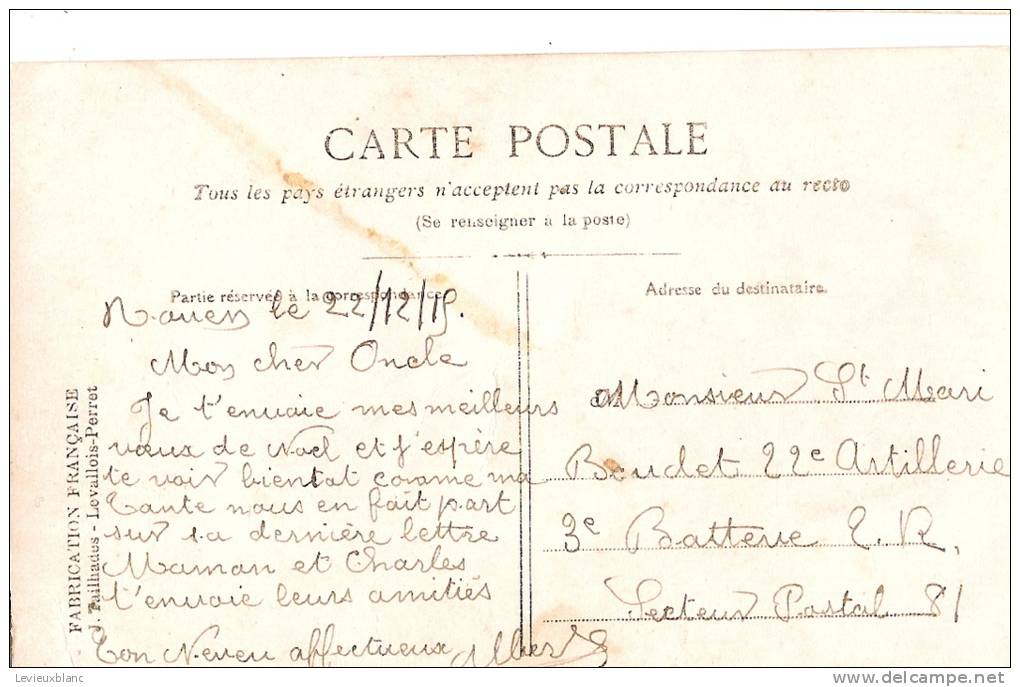 CARTE POSTALE
Tous les pays étrangers n'acceptent pas la correspondance au recto
(Se renseigner a la poste)
Partie réservée à la correspondance
Adresse du destinataire.
FABRICATION FRANÇAISE
J. Failhades - Levallois-Perret
Rouen le 22/12/15.
Mon cher Oncle
Je t'envoie mes meilleurs
vœux de Noel et j'espère
te voir bientot comme ma
Tante nous en fait part
sur sa dernière lettre
Maman et Charles
t'envoie leurs amitiés
Ton Neveu affectueux Albert
Monsieur St Mari
Boudet 22e Artillerie
3e Batterie E. R.
Secteur Postal 81
Levieuxblanc
delcampe.net